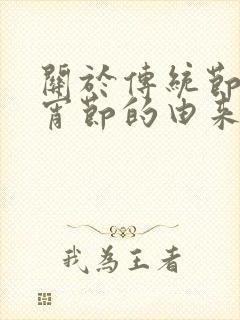 關於傳統節
宵節的由来
我為王者